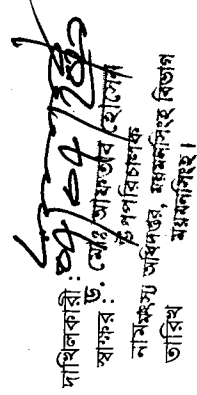 দাখিলকারী :
স্বাক্ষর :
ড. মোঃ আফতাব হোসেন
উপপরিচালক
নাম
মৎস্য অধিদপ্তর, ময়মনসিংহ বিভাগ
তারিখ
ময়মনসিংহ।